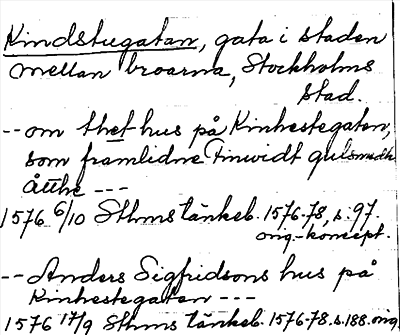 Kindstugatan, gata i staden
mellan broarna, Stockholms
stad.
-- om thet hus på Kinhestegaten,
som framlidne Finwidt gulsmedh
åtthe ---
1576 6/10 Sthms tänkeb. 1576-78, s. 97.
orig.-koncept.
-- Anders Sigfridsons hus på
Kinhestegaten ---
1576 17/9 Sthms tänkeb. 1576-78. s. 188. orig